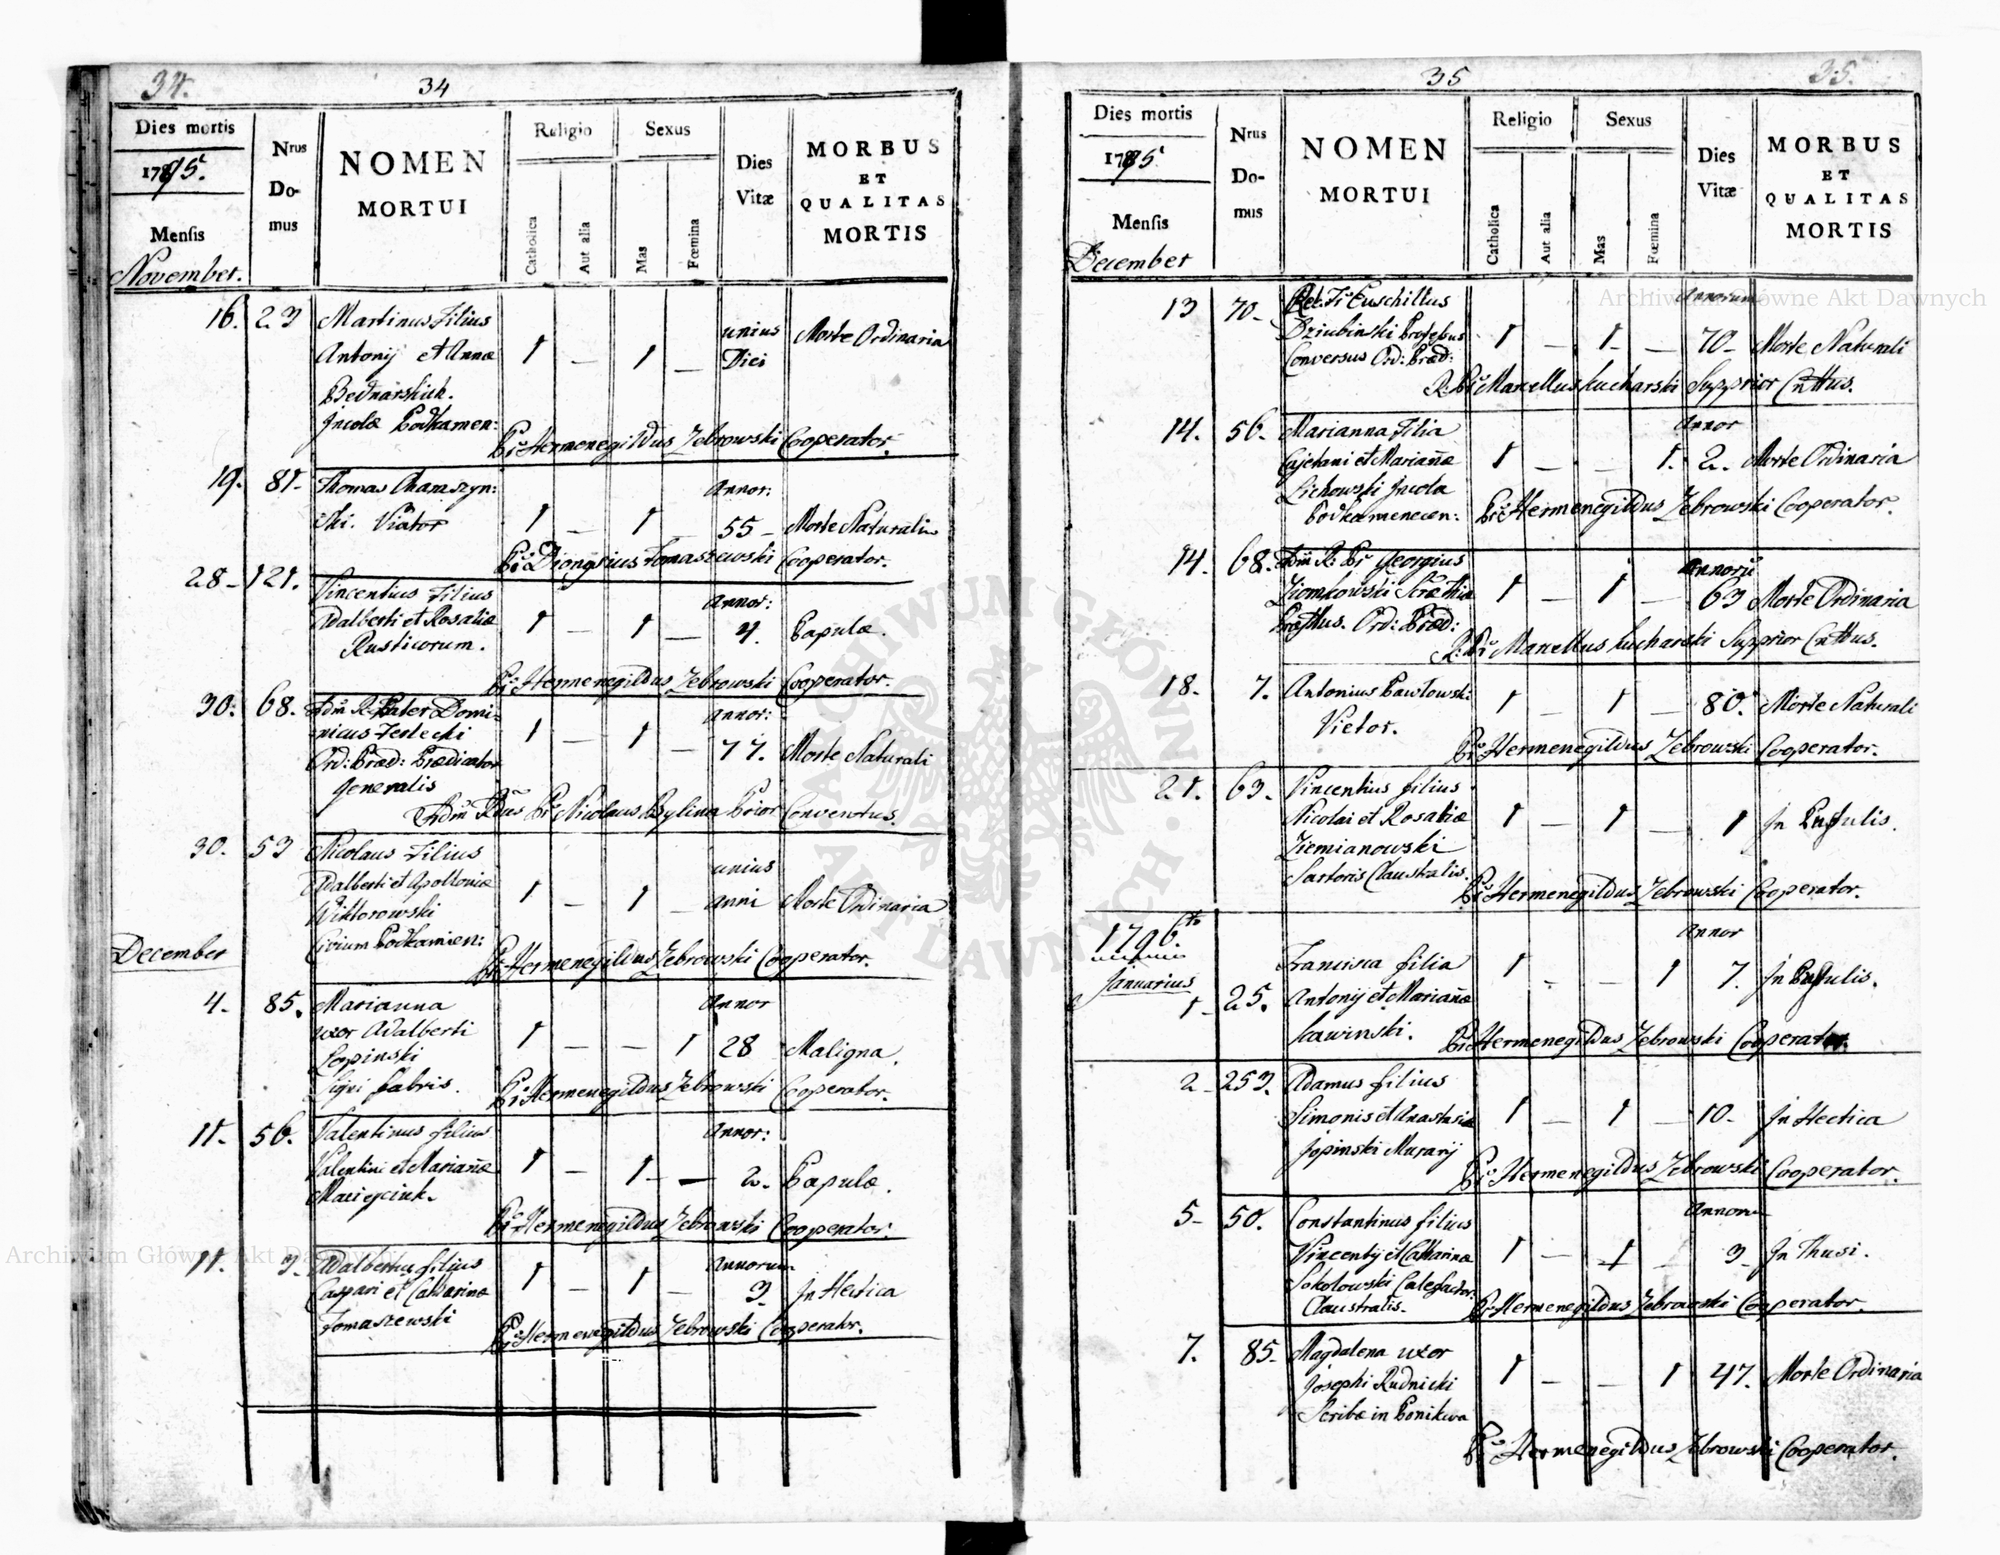 34.
34
Dies mortis
1795.
Mensis
November.
Nrus
Domus
NOMEN
MORTUI
Religio
Catholica
Aut alia
Sexus
Mas
Fœmina
Dies
Vitæ
MORBUS
ET
QUALITAS
MORTIS
16. 23 Martinus Filius
Antonij et Annæ
Bednarskich.
Incolæ Podkamen:
1 — 1 — unius Diei Morte Ordinaria
Pr: Hermenegildus Zebrowski Cooperator.
19. 81. Thomas Charaszyn:
ski. Viator
1 — 1 Annor: 55 — Morte Naturali
Pr: Dionysius Tomaszewski Cooperator.
28 - 121. Vincentius Filius
Adalberti et Rosaliæ
Rusticorum.
1 — 1 — Annor: 4. Papulæ.
Pr: Hermenegildus Zebrowski Cooperator.
30. 68. Adm R: Pater Domi-
nicus
Ord: Præd: Prædicator
Generalis
1 — 1 — Annor: 77. Morte Naturali
Adm Rdus Pr: Nicolaus Bylina Prior Conventus.
30. 53 Nicolaus Filius
Adalberti et Apolloniæ
Wiktorowski
Civium Podkamien:
1 — 1 — unius anni Morte Ordinaria
Pr: Hermenegildus Zebrowski Cooperator.
December
4. 85. Marianna
uxor Adalberti
Lapinski
Fabris.
1 — — 1 Annor 28 Maligna.
Pr: Hermenegildus Zebrowski Cooperator.
11. 56. Valentinus filius
Valentini et Mariañæ
1 — 1 — Annor: 2. Papulæ.
Pr: Hermenegildus Zebrowski Cooperator.
11. 3. Adalbertus filius
Caspari et Catharinæ
Tomaszewski
1 — 1 — Annorum 3. In Hectica
Pr: Hermenegildus Zebrowski Cooperator.
35
35.
Dies mortis
1795.
Mensis
December
Nrus
Domus
NOMEN
MORTUI
Religio
Catholica
Aut alia
Sexus
Mas
Fœmina
Dies
Vitæ
MORBUS
ET
QUALITAS
MORTIS
13 70. Euschillus
Dziubinski Professus
Conversus Ord: Præd:
1 — 1 — Annorum 70 — Morte Naturali
R: Pr: Marcellus Kucharski Supprior Cnttus.
14. 56. Marianna Filia
Cajetani et Mariañæ
Lichowski Incola
Podkamenecen:
1 — — 1. Annor 2. Morte Ordinaria
Pr: Hermenegildus Zebrowski Cooperator.
14. 68. Adm R: Pr Georgius
Ziomkowski
Ord: Præd:
1 — 1 — Annorū 63 Morte Ordinaria
R: Pr: Marcellus Kucharski Supprior Cnttus.
18. 7. Antonius Pawlowski
Vietor.
1 — 1 — 80. Morte Naturali
Pr: Hermenegildus Zebrowski Cooperator.
21. 63. Vincentius filius
Nicolai et Rosaliæ
Ziemianowski
Sartoris Claustralis.
1 — 1 — 1 In Pustulis.
Pr: Hermenegildus Zebrowski Cooperator.
1796.to
Januarius
1 25. Francisca filia
Antonij et Mariañæ
Kawinski.
1 — — 1 Annor 7. In Pustulis.
Pr: Hermenegildus Zebrowski Cooperator.
2 - 253. Adamus filius
Simonis et Anastasiæ
Jopinski Murarij
1 — 1 — 10 — In Hectica
Pr: Hermenegildus Zebrowski Cooperator.
5 - 50. Constantinus filius
Vincentij et Catharinæ
Sokolowski Calefactor:
Claustralis.
1 — 1 — Annorum 3 — In Thusi.
Pr: Hermenegildus Zebrowski Cooperator.
7. 85. Magdalena uxor
Josephi Rudnicki
Scribæ in Ponikwa
1 — — 1 47. Morte Ordinaria
Pr: Hermenegildus Zebrowski Cooperator.
Archiwum Główne Akt Dawnych
Archiwum Główne Akt Dawnych
ARCHIWUM GŁÓWNE · AKT DAWNYCH ·